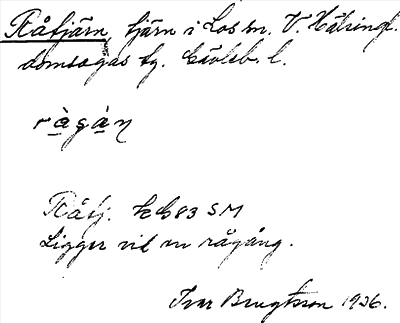 Råtjärn, tjärn i Los sn. V. Hälsingl.
domsagas tg. Gävleb. l.
ràgàn
Råtj. 83 SM
Ligger vid en rågång.
Ivar Bengtsson 1936.